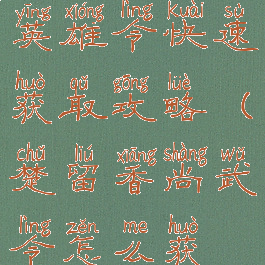 yīng xióng lìng kuài sù
英雄令快速
huò qǔ gōng lüè
获取攻略（
chǔ liú xiāng shàng wǔ
楚留香尚武
lìng zěn me huò
令怎么获